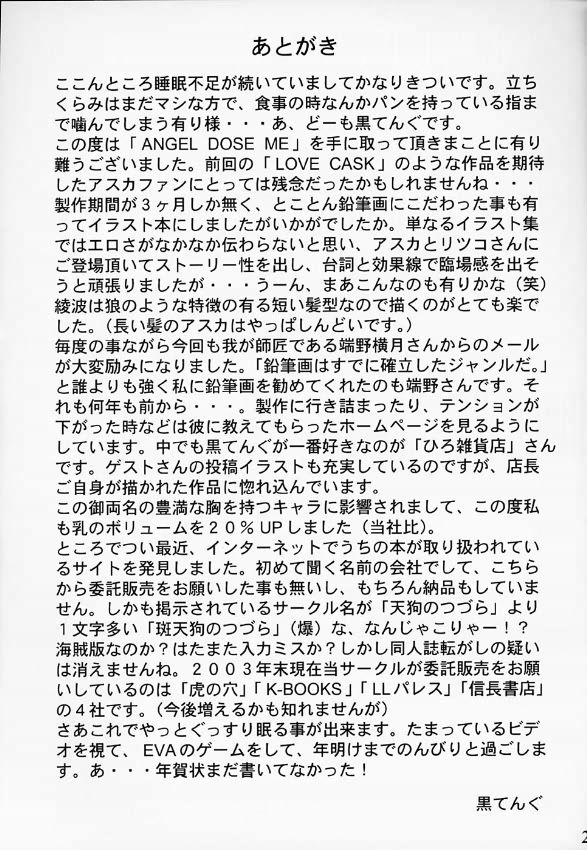 あとがき
ここんところ睡眠不足が続いていましてかなりきついです。立ち
くらみはまだマシな方で、食事の時なんかパンを持っている指ま
で噛んでしまう有り様・・・あ、どーも黒てんぐです。
この度は「ANGEL DOSE ME」を手に取って頂きまことに有り
難うございました。前回の「LOVE CASK」のような作品を期待
したアスカファンにとっては残念だったかもしれませんね・・・
製作期間が3ヶ月しか無く、とことん鉛筆画にこだわった事も有
ってイラスト本にしましたがいかがでしたか。単なるイラスト集
ではエロさがなかなか伝わらないと思い、アスカとリツコさんに
ご登場頂いてストーリー性を出し、台詞と効果線で臨場感を出そ
うと頑張りましたが・・・うーん、まあこんなのも有りかな（笑）
綾波は狼のような特徴の有る短い髪型なので描くのがとても楽で
した。（長い髪のアスカはやっぱしんどいです。）
毎度の事ながら今回も我が師匠である端野横月さんからのメール
が大変励みになりました。「鉛筆画はすでに確立したジャンルだ。」
と誰よりも強く私に鉛筆画を勧めてくれたのも端野さんです。そ
れも何年も前から・・・。製作に行き詰まったり、テンションが
下がった時などは彼に教えてもらったホームページを見るように
しています。中でも黒てんぐが一番好きなのが「ひろ雑貨店」さん
です。ゲストさんの投稿イラストも充実しているのですが、店長
ご自身が描かれた作品に惚れ込んでいます。
この御両名の豊満な胸を持つキャラに影響されまして、この度私
も乳のボリュームを20％UPしました（当社比）。
ところでつい最近、インターネットでうちの本が取り扱われてい
るサイトを発見しました。初めて聞く名前の会社でして、こちら
から委託販売をお願いした事も無いし、もちろん納品もしていま
せん。しかも掲示されているサークル名が「天狗のつづら」より
1文字多い「斑天狗のつづら」（爆）な、なんじゃこりゃー！？
海賊版なのか？はたまた入力ミスか？しかし同人誌転がしの疑い
は消えませんね。2003年末現在当サークルが委託販売をお願
いしているのは「虎の穴」「K-BOOKS」「LLパレス」「信長書店」
の4社です。（今後増えるかも知れませんが）
さあこれでやっとぐっすり眠る事が出来ます。たまっているビデ
オを視て、EVAのゲームをして、年明けまでのんびりと過ごしま
す。あ・・・年賀状まだ書いてなかった！
黒てんぐ
2